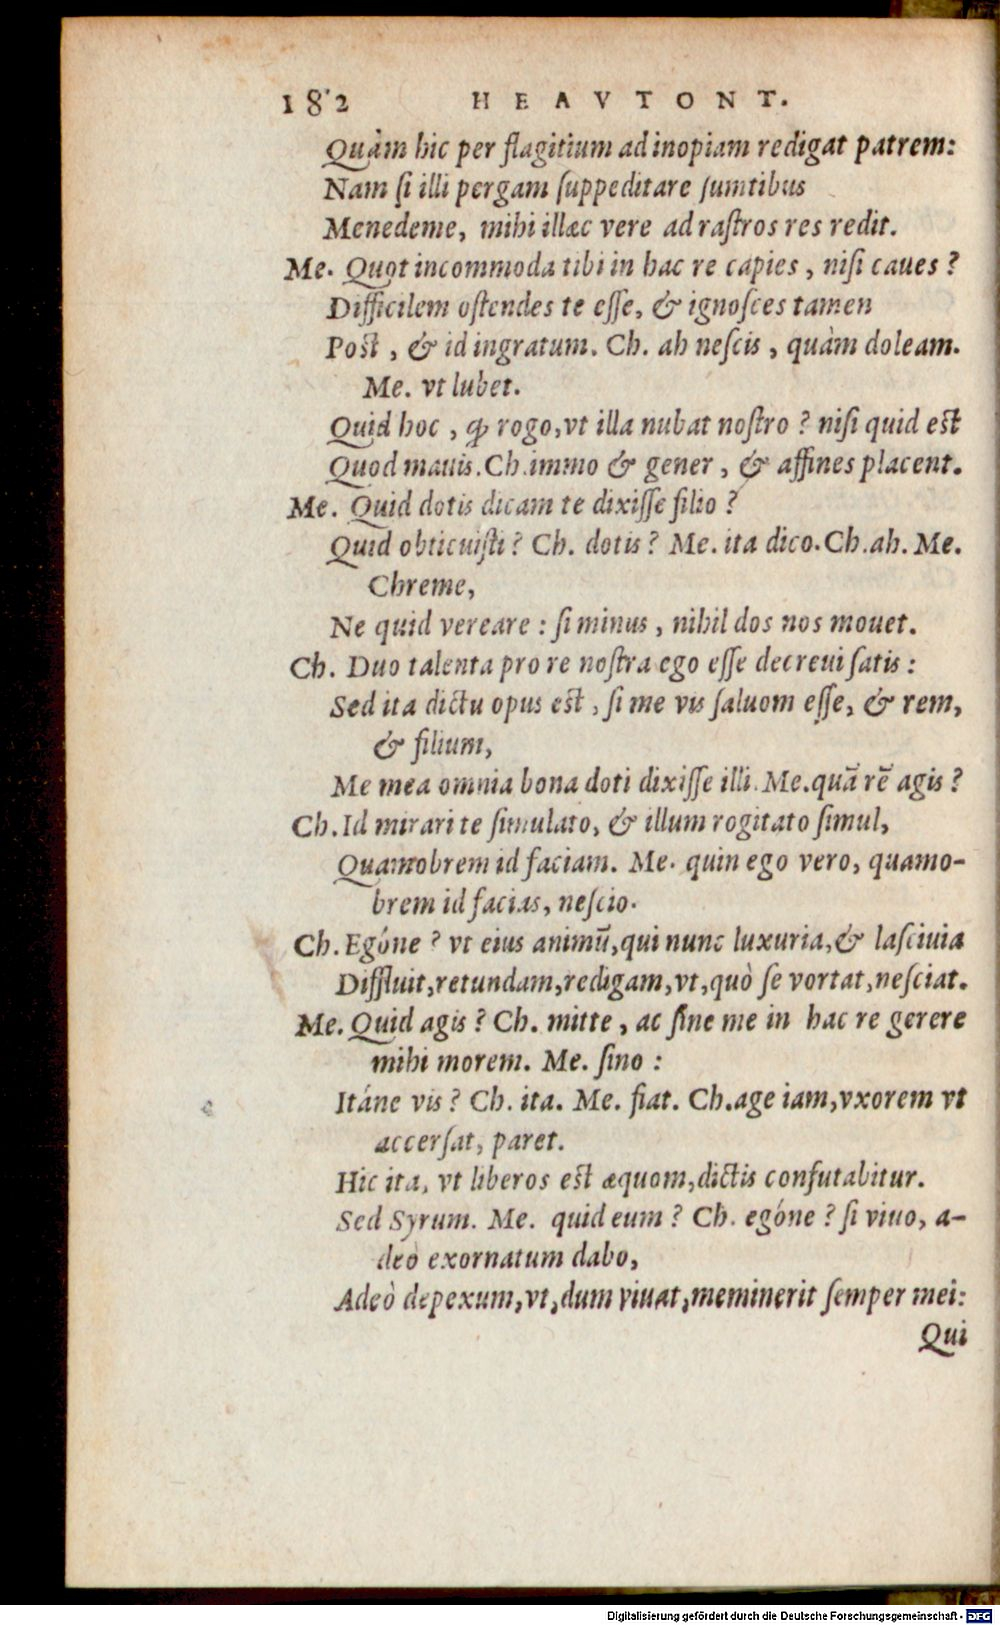 182 HEAVTONT.
Quàm hic per flagitium ad inopiam redigat patrem:
Nam ſi illi pergam ſuppeditare ſumtibus
Menedeme, mihi illæc vere ad raſtros res redit.
Me. Quot incommoda tibi in hac re capies, niſi caues?
Difficilem oſtendes te eſſe, & ignoſces tamen
Poſt, & id ingratum. Ch. ah neſcis, quàm doleam.
Me. vt lubet.
Quid hoc, ꝙ rogo, vt illa nubat noſtro? niſi quid eſt
Quod mauis. Ch. immo & gener, & affines placent.
Me. Quid dotis dicam te dixiſſe filio?
Quid obticuiſti? Ch. dotis? Me. ita dico. Ch. ah. Me.
Chreme,
Ne quid vereare: ſi minus, nihil dos nos mouet.
Ch. Duo talenta pro re noſtra ego eſſe decreui ſatis:
Sed ita dictu opus eſt, ſi me vis ſaluom eſſe, & rem,
& filium,
Me mea omnia bona doti dixiſſe illi. Me. quā rē agis?
Ch. Id mirari te ſimulato, & illum rogitato ſimul,
Quamobrem id faciam. Me. quin ego vero, quamo-
brem id facias, neſcio.
Ch. Egóne? vt eius animū, qui nunc luxuria, & laſciuia
Diffluit, retundam, redigam, vt, quò ſe vortat, neſciat.
Me. Quid agis? Ch. mitte, ac ſine me in hac re gerere
mihi morem. Me. ſino:
Itáne vis? Ch. ita. Me. fiat. Ch. age iam, vxorem vt
accerſat, paret.
Hic ita, vt liberos eſt æquom, dictis confutabitur.
Sed Syrum. Me. quid eum? Ch. egóne? ſi viuo, a-
deò exornatum dabo,
Adeò depexum, vt, dum viuat, meminerit ſemper mei:
Qui
Digitalisierung gefördert durch die Deutsche Forschungsgemeinschaft - DFG